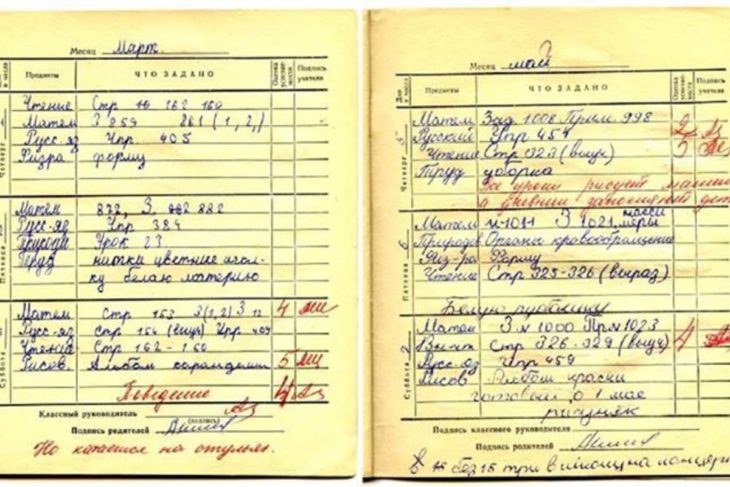 Месяц Март
Предметы ЧТО ЗАДАНО Оценка успеваемости Подпись учителя
Четверг
Чтение Стр 162 160
Матем З 259 261 (1, 2,)
Русс-яз Упр. 405
Физра форму
Пятница
Матем 872, З. 882
Русс-яз Упр 384
Урок 23
Труд нитки цветные иголку белаю материю
Суббота
Матем Стр 153 3(1,2) 3 4
Русс-яз Стр 154 (выуч) Упр 407
Чтение Стр 162-160
Рисов. Альбом карандаши 5
Поведение 4
Классный руководитель
(подпись)
Подпись родителей
Но катается на стульях.
Месяц май
Предметы ЧТО ЗАДАНО Оценка успеваемости Подпись учителя
Четверг 5
Матем Зад 1008 Прим. 998 2
Русский Упр 454 5
Чтение Стр 323 (выуч)
Труд уборка
Все уроки рисует машины
в дневник
Пятница 6
Матем №1011 З 1021 массы меры
Природов Органы кровообращение
Физ-ра Форму
Чтение Стр 325-326 (выраз)
Белую рубашку
Суббота
Матем З № 1000 Пр № 1023
Стр 326-329 (выуч) 4
Русс-яз Упр 459
Рисов Альбом краски
готовый о 1 мае
рисунок
Подпись классного руководителя
Подпись родителей
в без 15 три в школу на концерт